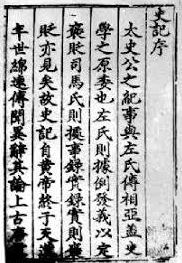 史記序
太史公之紀事與左氏傳相亞蓋史
學之原委也左氏則據例發義以定
褒貶司馬氏則採事錄實錄實則
貶亦見矣故史記自黃帝終于天漢
年世綿遠傳聞異辭其論上古